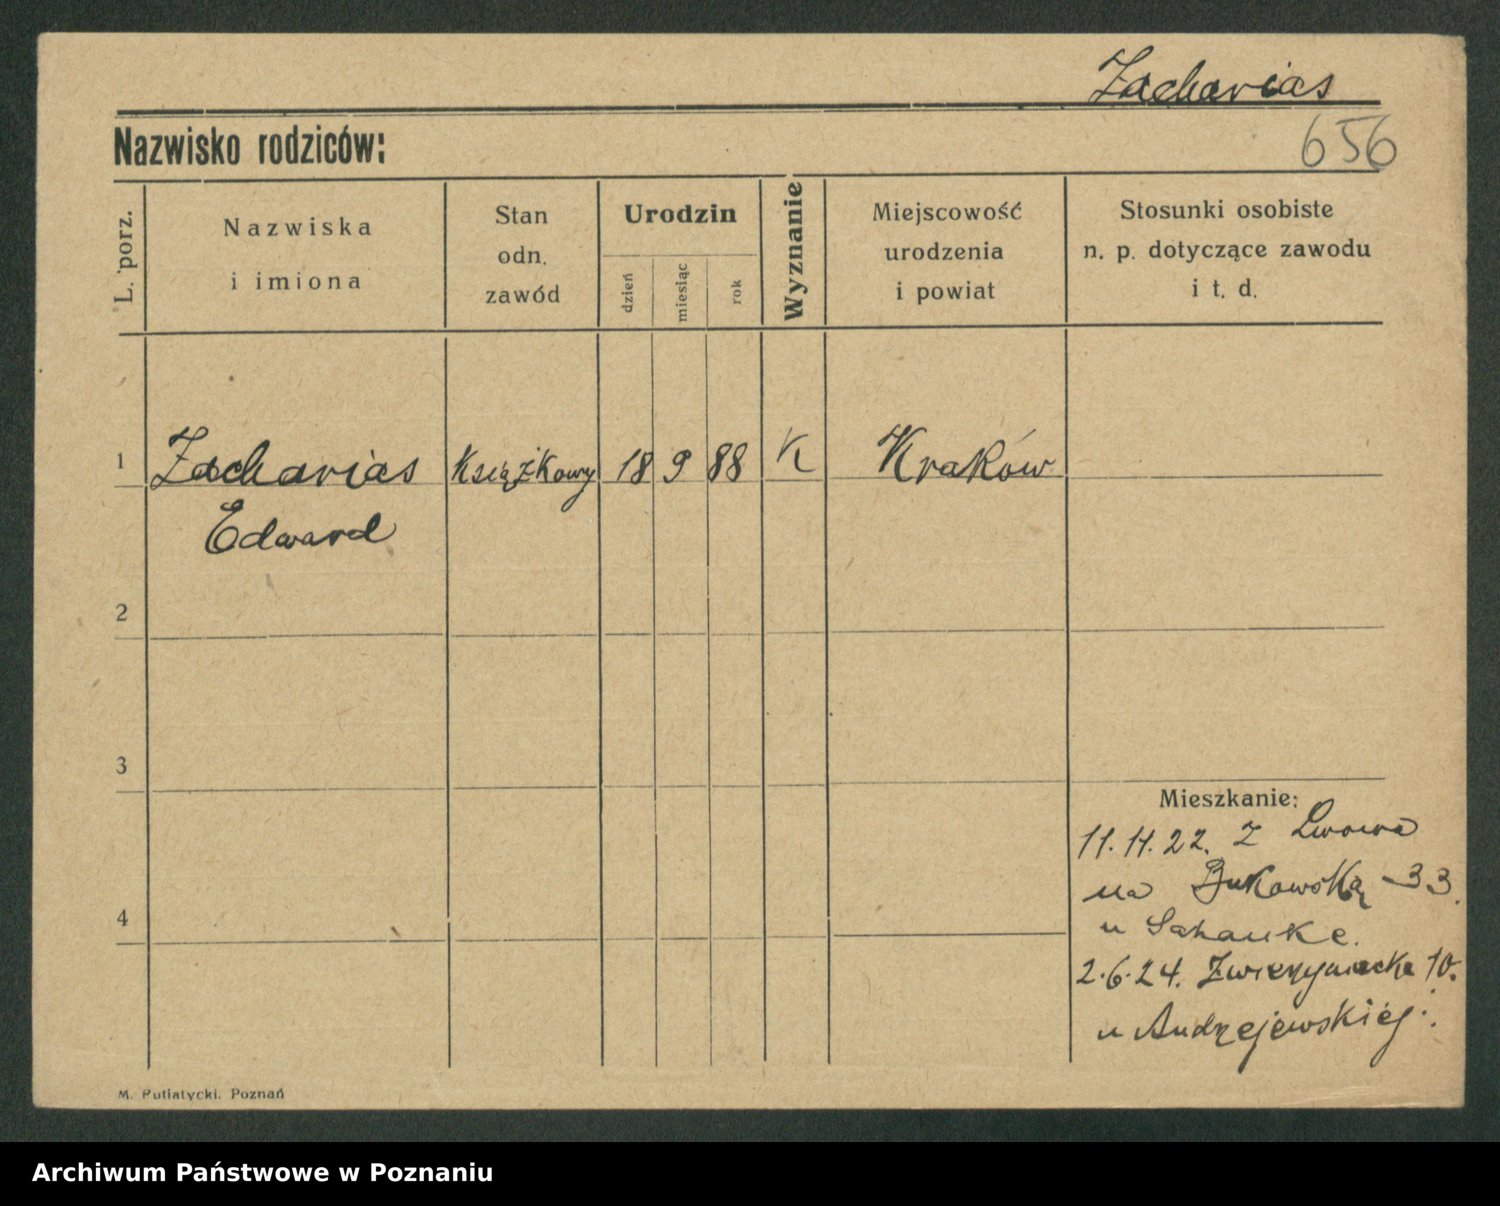 Zacharias
656
Nazwisko rodziców:
L. porz.
Nazwiska
i imiona
Stan
odn.
zawód
Urodzin
dzień
miesiąc
rok
Wyznanie
Miejscowość
urodzenia
i powiat
Stosunki osobiste
n. p. dotyczące zawodu
i t. d.
1 Zacharias Książkowy 18 9 88 K Kraków
Edward
2
3
4
Mieszkanie:
11.11.22. Z Lwowa
na Bukowską 33.
u
2.6.24. Zwierzyniecka 10.
u Andrzejewskiéj.
M. Putiatycki, Poznań
Archiwum Państwowe w Poznaniu